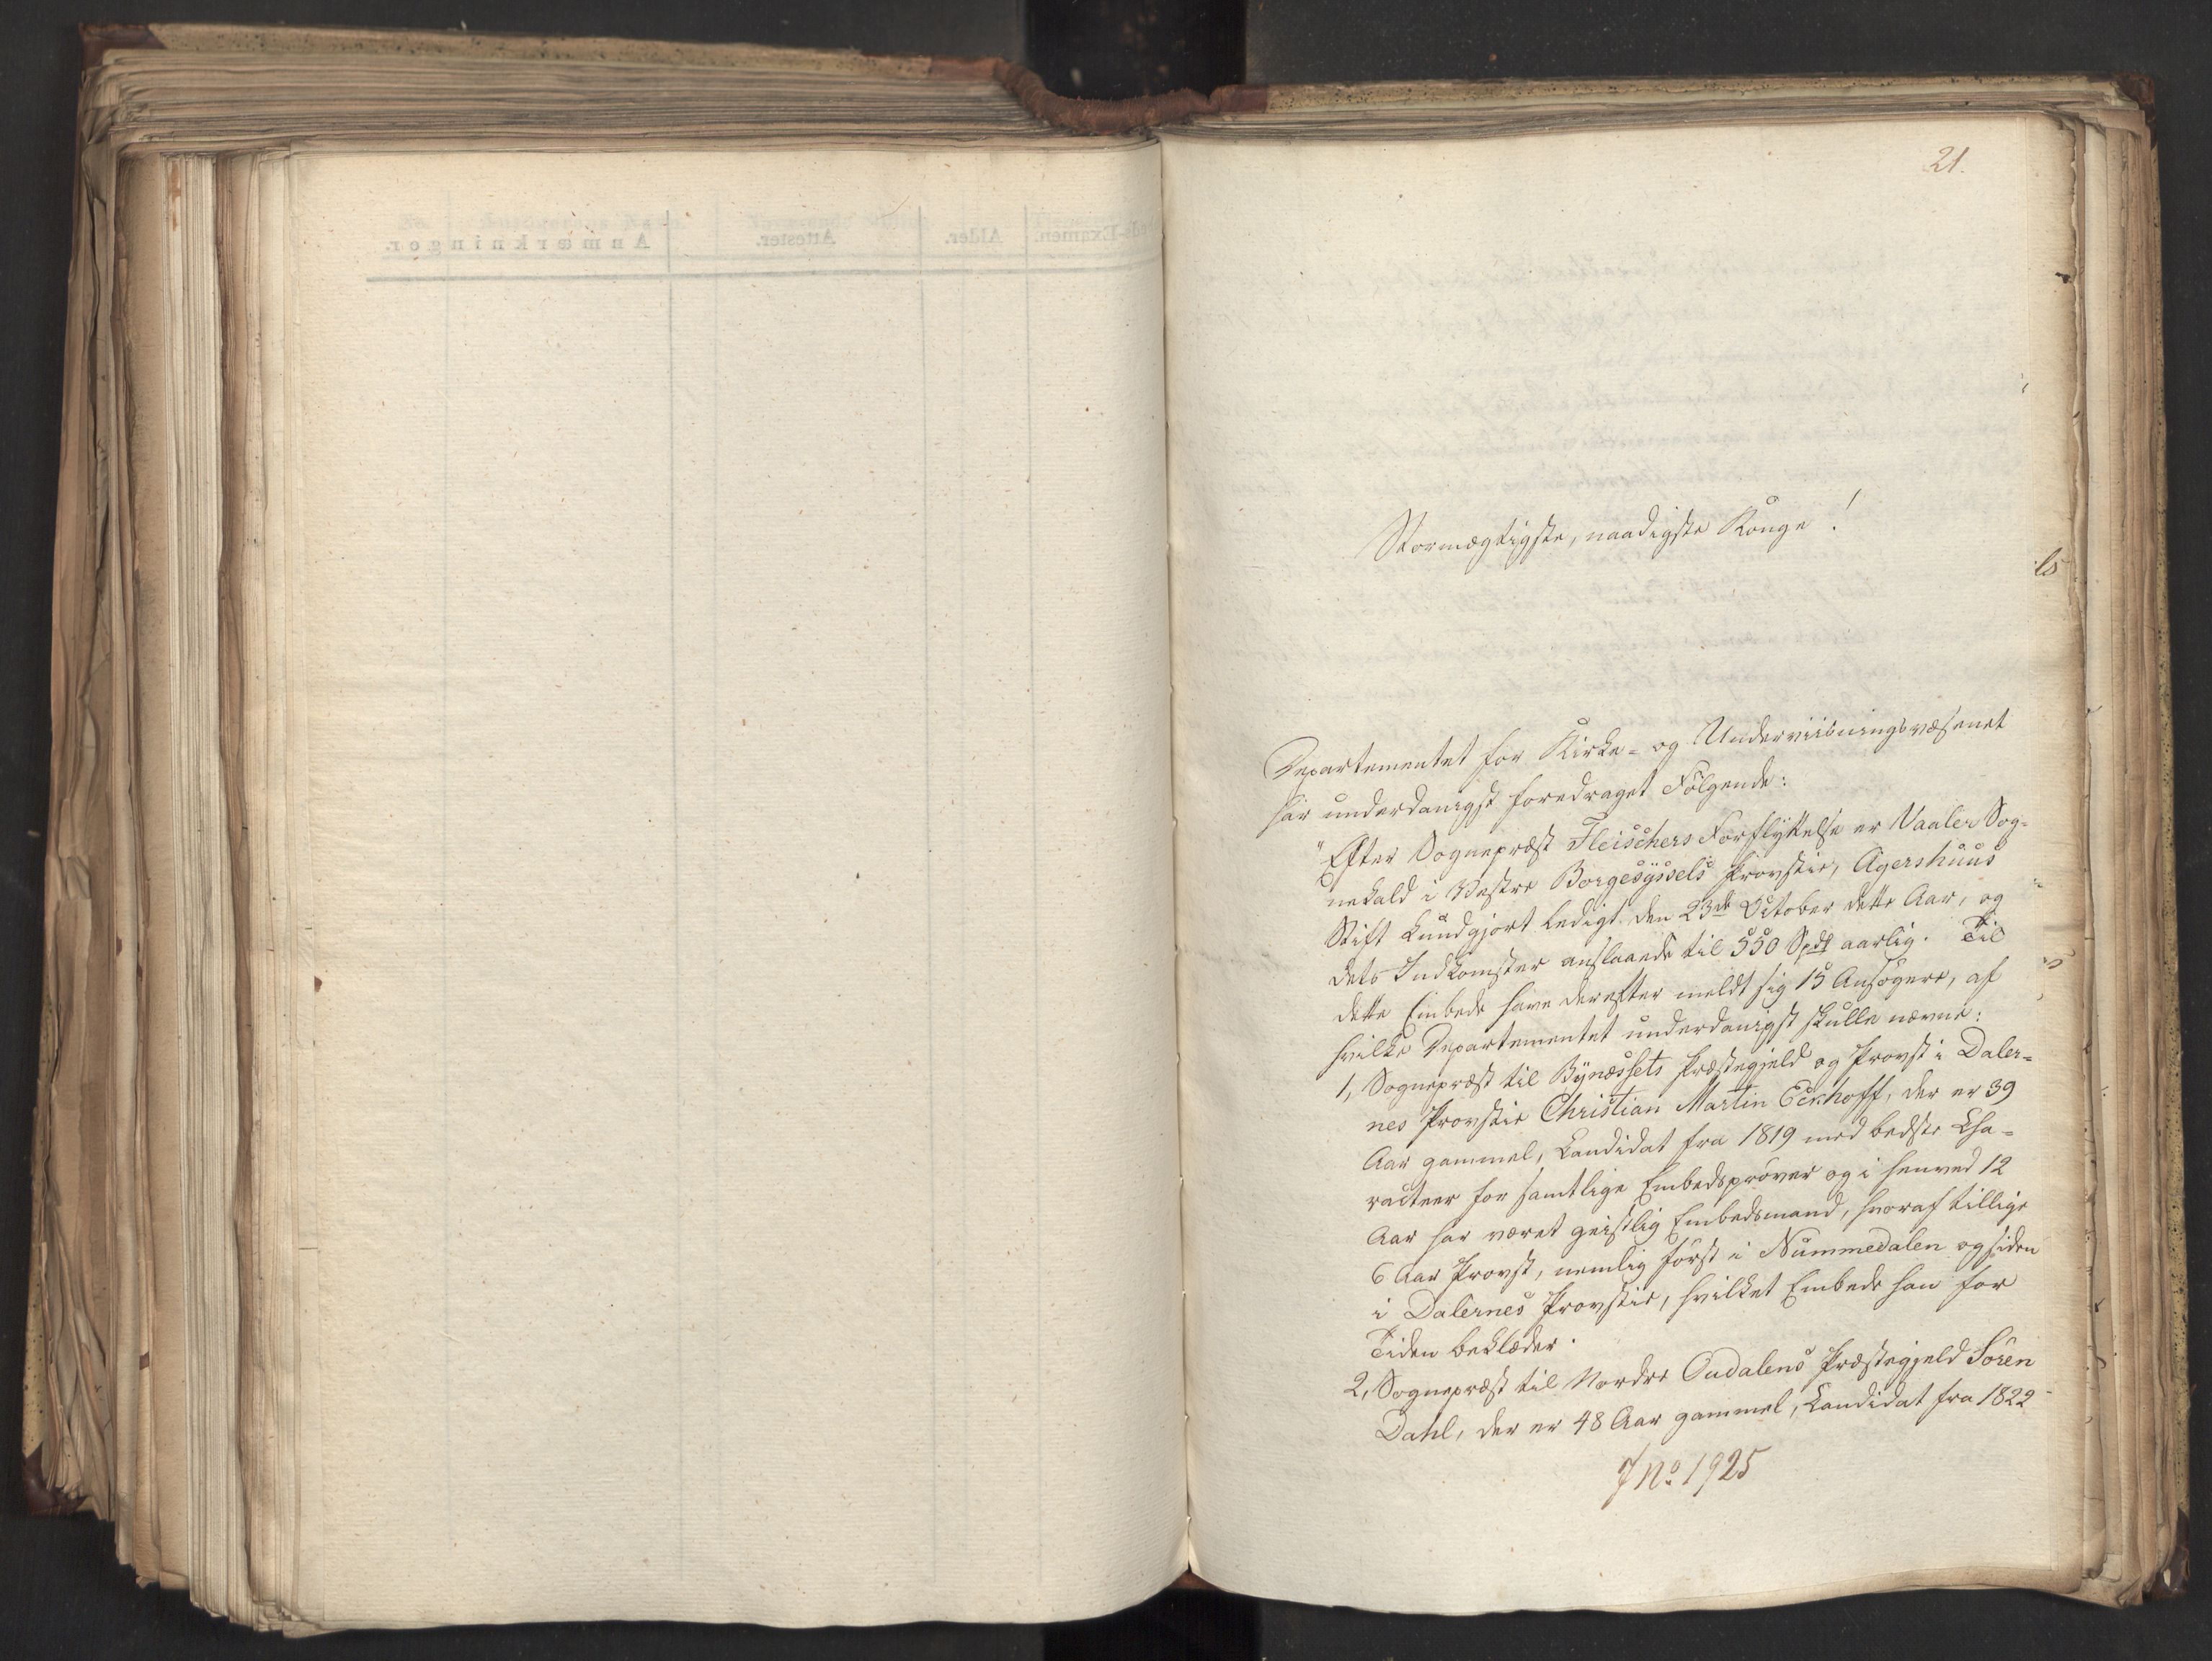 21.
Stormægtigste, naadigste Konge!
Departementet for Kirke- og Underviisningsvæsenet
har underdanigst foredraget Følgende:
"Efter Sognepræst Fleischers Forflyttelse er Vaaler Sog-
nekald i Vestre Borgesyssels Provstie, Agershuus
Stift kundgjort ledigt den 23de October dette Aar, og
dets Indkomster anslaaede til 550 Spdl aarlig. Til
dette Embede have derefter meldt sig 15 Ansøgere, af
hvilke Departementet underdanigst skulle nævne:
1, Sognepræst til Bynæssets Præstegjeld og Provst i Daler-
nes Provstie Christian Martin Eckhoff, der er 39
Aar gammel, Candidat fra 1819 med bedste Cha-
racteer for samtlige Embedsprøver og i henved 12
Aar har været geistlig Embedsmand, hvoraf tillige
6 Aar Provst, nemlig først i Nummedalen og siden
i Dalernes Provstie, hvilket Embede han for
Tiden beklæder.
2, Sognepræst til Nordre Oudalens Præstegjeld Sören
Dahl, der er 48 Aar gammel, Candidat fra 1822
J No 1925
Anmærkninger.
Attester.
Alder.